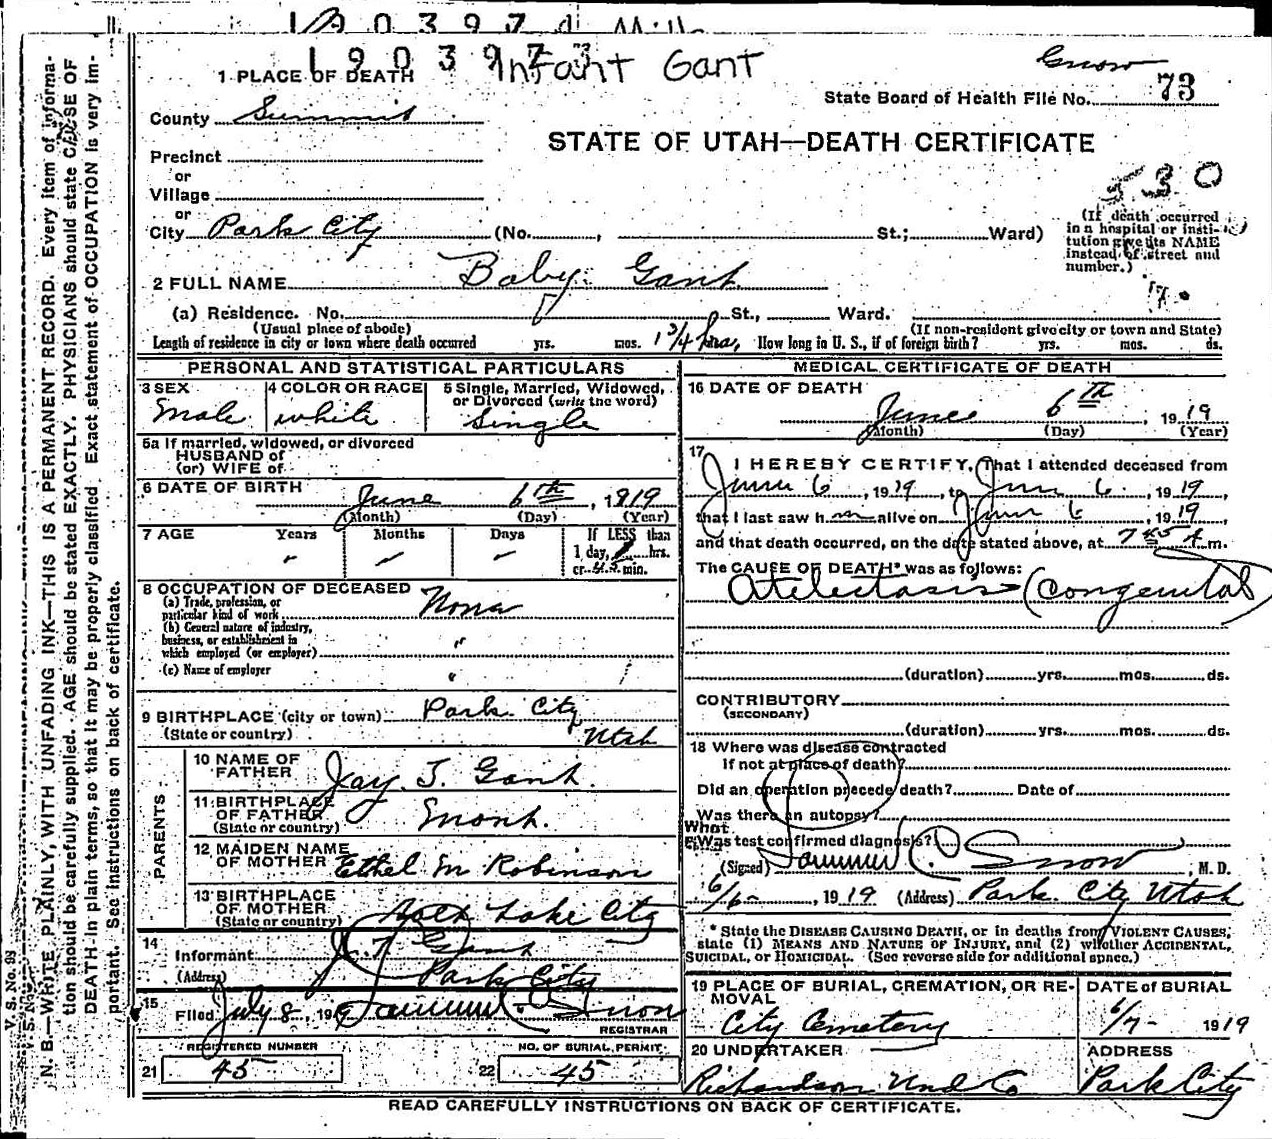 190397
Infant Gant
Snow
1 PLACE OF DEATH
State Board of Health File No. 73
County Summit
STATE OF UTAH—DEATH CERTIFICATE
Precinct
or
Village
530
or
City Park City (No. , St.; Ward)
(If death occurred in a hospital or institution give its NAME instead of street and number.)
2 FULL NAME Baby Gant
(a) Residence. No. St., Ward.
(Usual place of abode) (If non-resident give city or town and State)
Length of residence in city or town where death occurred yrs. mos. 1 3/4 hrs, How long in U. S., if of foreign birth? yrs. mos. ds.
PERSONAL AND STATISTICAL PARTICULARS
3 SEX Male
4 COLOR OR RACE white
5 Single, Married, Widowed, or Divorced (write the word) Single
5a If married, widowed, or divorced
HUSBAND of
(or) WIFE of
6 DATE OF BIRTH June 6th, 1919
(Month) (Day) (Year)
7 AGE Years Months Days If LESS than
1 day, hrs.
or min.
8 OCCUPATION OF DECEASED
(a) Trade, profession, or
particular kind of work None
(b) General nature of industry,
business, or establishment in
which employed (or employer) "
(c) Name of employer "
9 BIRTHPLACE (city or town) Park City
(State or country) Utah
PARENTS
10 NAME OF FATHER Jay T. Gant.
11 BIRTHPLACE OF FATHER
(State or country)
12 MAIDEN NAME OF MOTHER Ethel M Robinson
13 BIRTHPLACE OF MOTHER Salt Lake City
(State or country)
14
Informant J. T. Gant
(Address) Park City
15
Filed July 8, 191 9 Snow
REGISTRAR
REGISTERED NUMBER
21 45
NO. OF BURIAL PERMIT
22 45
MEDICAL CERTIFICATE OF DEATH
16 DATE OF DEATH
June 6th, 1919
(Month) (Day) (Year)
17
I HEREBY CERTIFY, That I attended deceased from
June 6, 1919, to June 6, 1919,
that I last saw h m alive on June 6, 1919,
and that death occurred, on the date stated above, at 7 45 A m.
The CAUSE OF DEATH* was as follows:
Atelectasis (Congenital)
(duration) yrs. mos. ds.
CONTRIBUTORY
(SECONDARY)
(duration) yrs. mos. ds.
18 Where was disease contracted
if not at place of death?
Did an operation precede death? Date of
Was there an autopsy?
What test confirmed diagnosis?
(Signed) Snow, M. D.
6/6-, 1919 (Address) Park City Utah
* State the DISEASE CAUSING DEATH, or in deaths from VIOLENT CAUSES,
state (1) MEANS AND NATURE OF INJURY, and (2) whether ACCIDENTAL,
SUICIDAL, or HOMICIDAL. (See reverse side for additional space.)
19 PLACE OF BURIAL, CREMATION, OR REMOVAL
City Cemetery
DATE of BURIAL
6/7- 1919
20 UNDERTAKER
Richardson Und Co
ADDRESS
Park City
READ CAREFULLY INSTRUCTIONS ON BACK OF CERTIFICATE.
V. S. No. 98
N. B.—WRITE PLAINLY, WITH UNFADING INK—THIS IS A PERMANENT RECORD. Every item of informa-
tion should be carefully supplied. AGE should be stated EXACTLY. PHYSICIANS should state CAUSE OF
DEATH in plain terms, so that it may be properly classified. Exact statement of OCCUPATION is very im-
portant. See instructions on back of certificate.